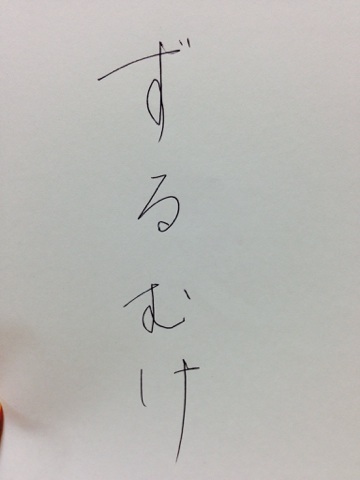 ずるむけ